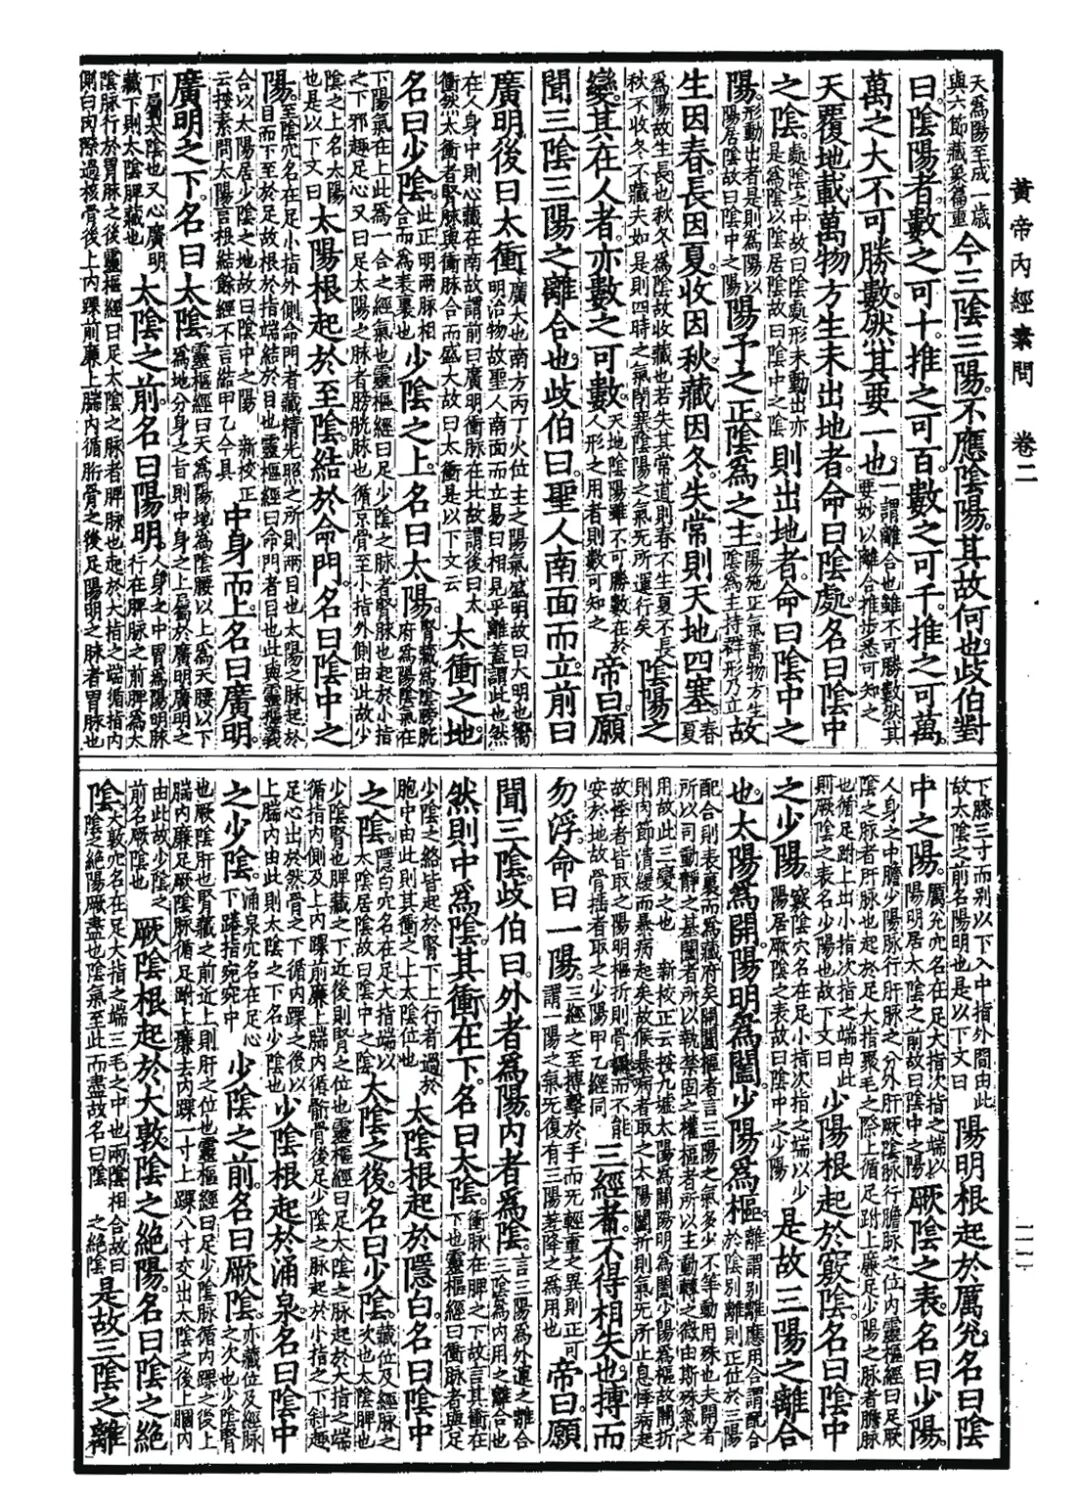 天爲陽至成一歲與六節藏象篇重今三陰三陽不應陰陽其故何也歧伯對
曰陰陽者數之可十推之可百數之可千推之可萬
萬之大不可勝數然其要一也一謂離合也雖不可勝數然其要妙以離合推步悉可知之
天覆地載萬物方生未出地者命曰陰處名曰陰中
之陰處陰之中故曰陰處形未動出亦是爲陰以陰居陰故曰陰中之陰則出地者命曰陰中之
陽形動出者是則爲陽以陽居陰故曰陰中之陽陽予之正陰爲之主陽施正氣萬物方生陰爲主持群形乃立故
生因春長因夏收因秋藏因冬失常則天地四塞春夏
爲陽故生長也秋冬爲陰故收藏也若失其常道則春不生夏不長秋不收冬不藏夫如是則四時之氣閉塞陰陽之氣无所運行矣陰陽之
變其在人者亦數之可數天地陰陽雖不可勝數在於人形之用者則數可知之帝曰願
聞三陰三陽之離合也歧伯曰聖人南面而立前曰
廣明後曰太衝廣大也南方丙丁火位主之陽氣盛明故曰大明也嚮明治物故聖人南面而立易曰相見乎離蓋謂此也然
在人身中則心藏在南故謂前曰廣明衝脉在北故謂後曰太衝然太衝者腎脉與衝脉合而盛大故曰太衝是以下文云太衝之地
名曰少陰此正明兩脉相合而爲表裏也少陰之上名曰太陽腎藏爲陰膀胱府爲陽陰氣在
下陽氣在上此爲一合之經氣也靈樞經曰足少陰之脉者腎脉也起於小指之下邪趣足心又曰足太陽之脉者膀胱脉也循京骨至小指外側由此故少
陰之上名太陽也是以下文曰太陽根起於至陰結於命門名曰陰中之
陽至陰穴名在足小指外側命門者藏精光照之所則兩目也太陽之脉起於目而下至於足故根於指端結於目也靈樞經曰命門者目也此與靈樞義
合以太陽居少陰之地故曰陰中之陽 新校正云按素問太陽言根結餘經不言結甲乙今具中身而上名曰廣明
廣明之下名曰太陰靈樞經曰天爲陽地爲陰腰以上爲天腰以下爲地分身之旨則中身之上屬於廣明廣明之
下屬太陰也又心廣明藏下則太陰脾藏也太陰之前名曰陽明人身之中胃爲陽明脉行在脾脉之前脾爲太
陰脉行於胃脉之後靈樞經曰足太陰之脉者脾脉也起於大指之端循指內側白肉際過核骨後上內踝前廉上腨內循胻骨之後足陽明之脉者胃脉也
黃帝內經素問 卷二
下膝三寸而別以下入中指外間由此故太陰之前名陽明也是以下文曰陽明根起於厲兌名曰陰
中之陽厲兌穴名在足大指次指之端以陽明居太陰之前故曰陰中之陽厥陰之表名曰少陽
人身之中膽少陽脉行肝脉之分外肝厥陰脉行膽脉之位內靈樞經曰足厥陰之脉者肝脉也起於足大指聚毛之際上循足跗上廉足少陽之脉者膽脉
也循足跗上出小指次指之端由此則厥陰之表名少陽也故下文曰少陽根起於竅陰名曰陰中
之少陽竅陰穴名在足小指次指之端以少陽居厥陰之表故曰陰中之少陽是故三陽之離合
也太陽爲開陽明爲闔少陽爲樞離謂別離應用合謂配合於陰別離則正位於三陽
配合則表裏而爲藏府矣開闔樞者言三陽之氣多少不等動用殊也夫開者所以司動靜之基闔者所以執禁固之權樞者所以主動轉之微由斯殊氣之
用故此三變之也 新校正云按九墟太陽爲關陽明爲闔少陽爲樞故關折則肉節潰緩而暴病起矣故候暴病者取之太陽闔折則氣无所止息悸病起
故悸者皆取之陽明樞折則骨繇而不能安於地故骨繇者取之少陽甲乙經同三經者不得相失也搏而
勿浮命曰一陽三經之至搏擊於手而无輕重之異則正可謂一陽之氣无復有三陽差降之爲用也帝曰願
聞三陰歧伯曰外者爲陽內者爲陰言三陽爲外運之離合三陰爲內用之離合也
然則中爲陰其衝在下名曰太陰衝脉在脾之下故言其衝在下也靈樞經曰衝脉者與足
少陰之絡皆起於腎下上行者過於胞中由此則其衝之上太陰位也太陰根起於隱白名曰陰中
之陰隱白穴名在足大指端以太陰居陰故曰陰中之陰太陰之後名曰少陰藏位及經脉之次也太陰脾也
少陰腎也脾藏之下近後則腎之位也靈樞經曰足太陰之脉起於大指之端循指內側及上內踝前廉上腨內循胻骨後足少陰之脉起於小指之下斜趣
足心出於然骨之下循內踝之後以上腨內由此則太陰之下名少陰也少陰根起於涌泉名曰陰中
之少陰涌泉穴名在足心下踡指宛宛中少陰之前名曰厥陰亦藏位及經脉之次也少陰腎
也厥陰肝也腎藏之前近上則肝之位也靈樞經曰足少陰脉循內踝之後上腨內廉足厥陰脉循足跗上廉去內踝一寸上踝八寸交出太陰之後上膕內
由此故少陰之前名厥陰也厥陰根起於大敦陰之絕陽名曰陰之絕
陰大敦穴名在足大指之端三毛之中也兩陰相合故曰陰之絕陽厥盡也陰氣至此而盡故名曰陰之絕陰是故三陰之離